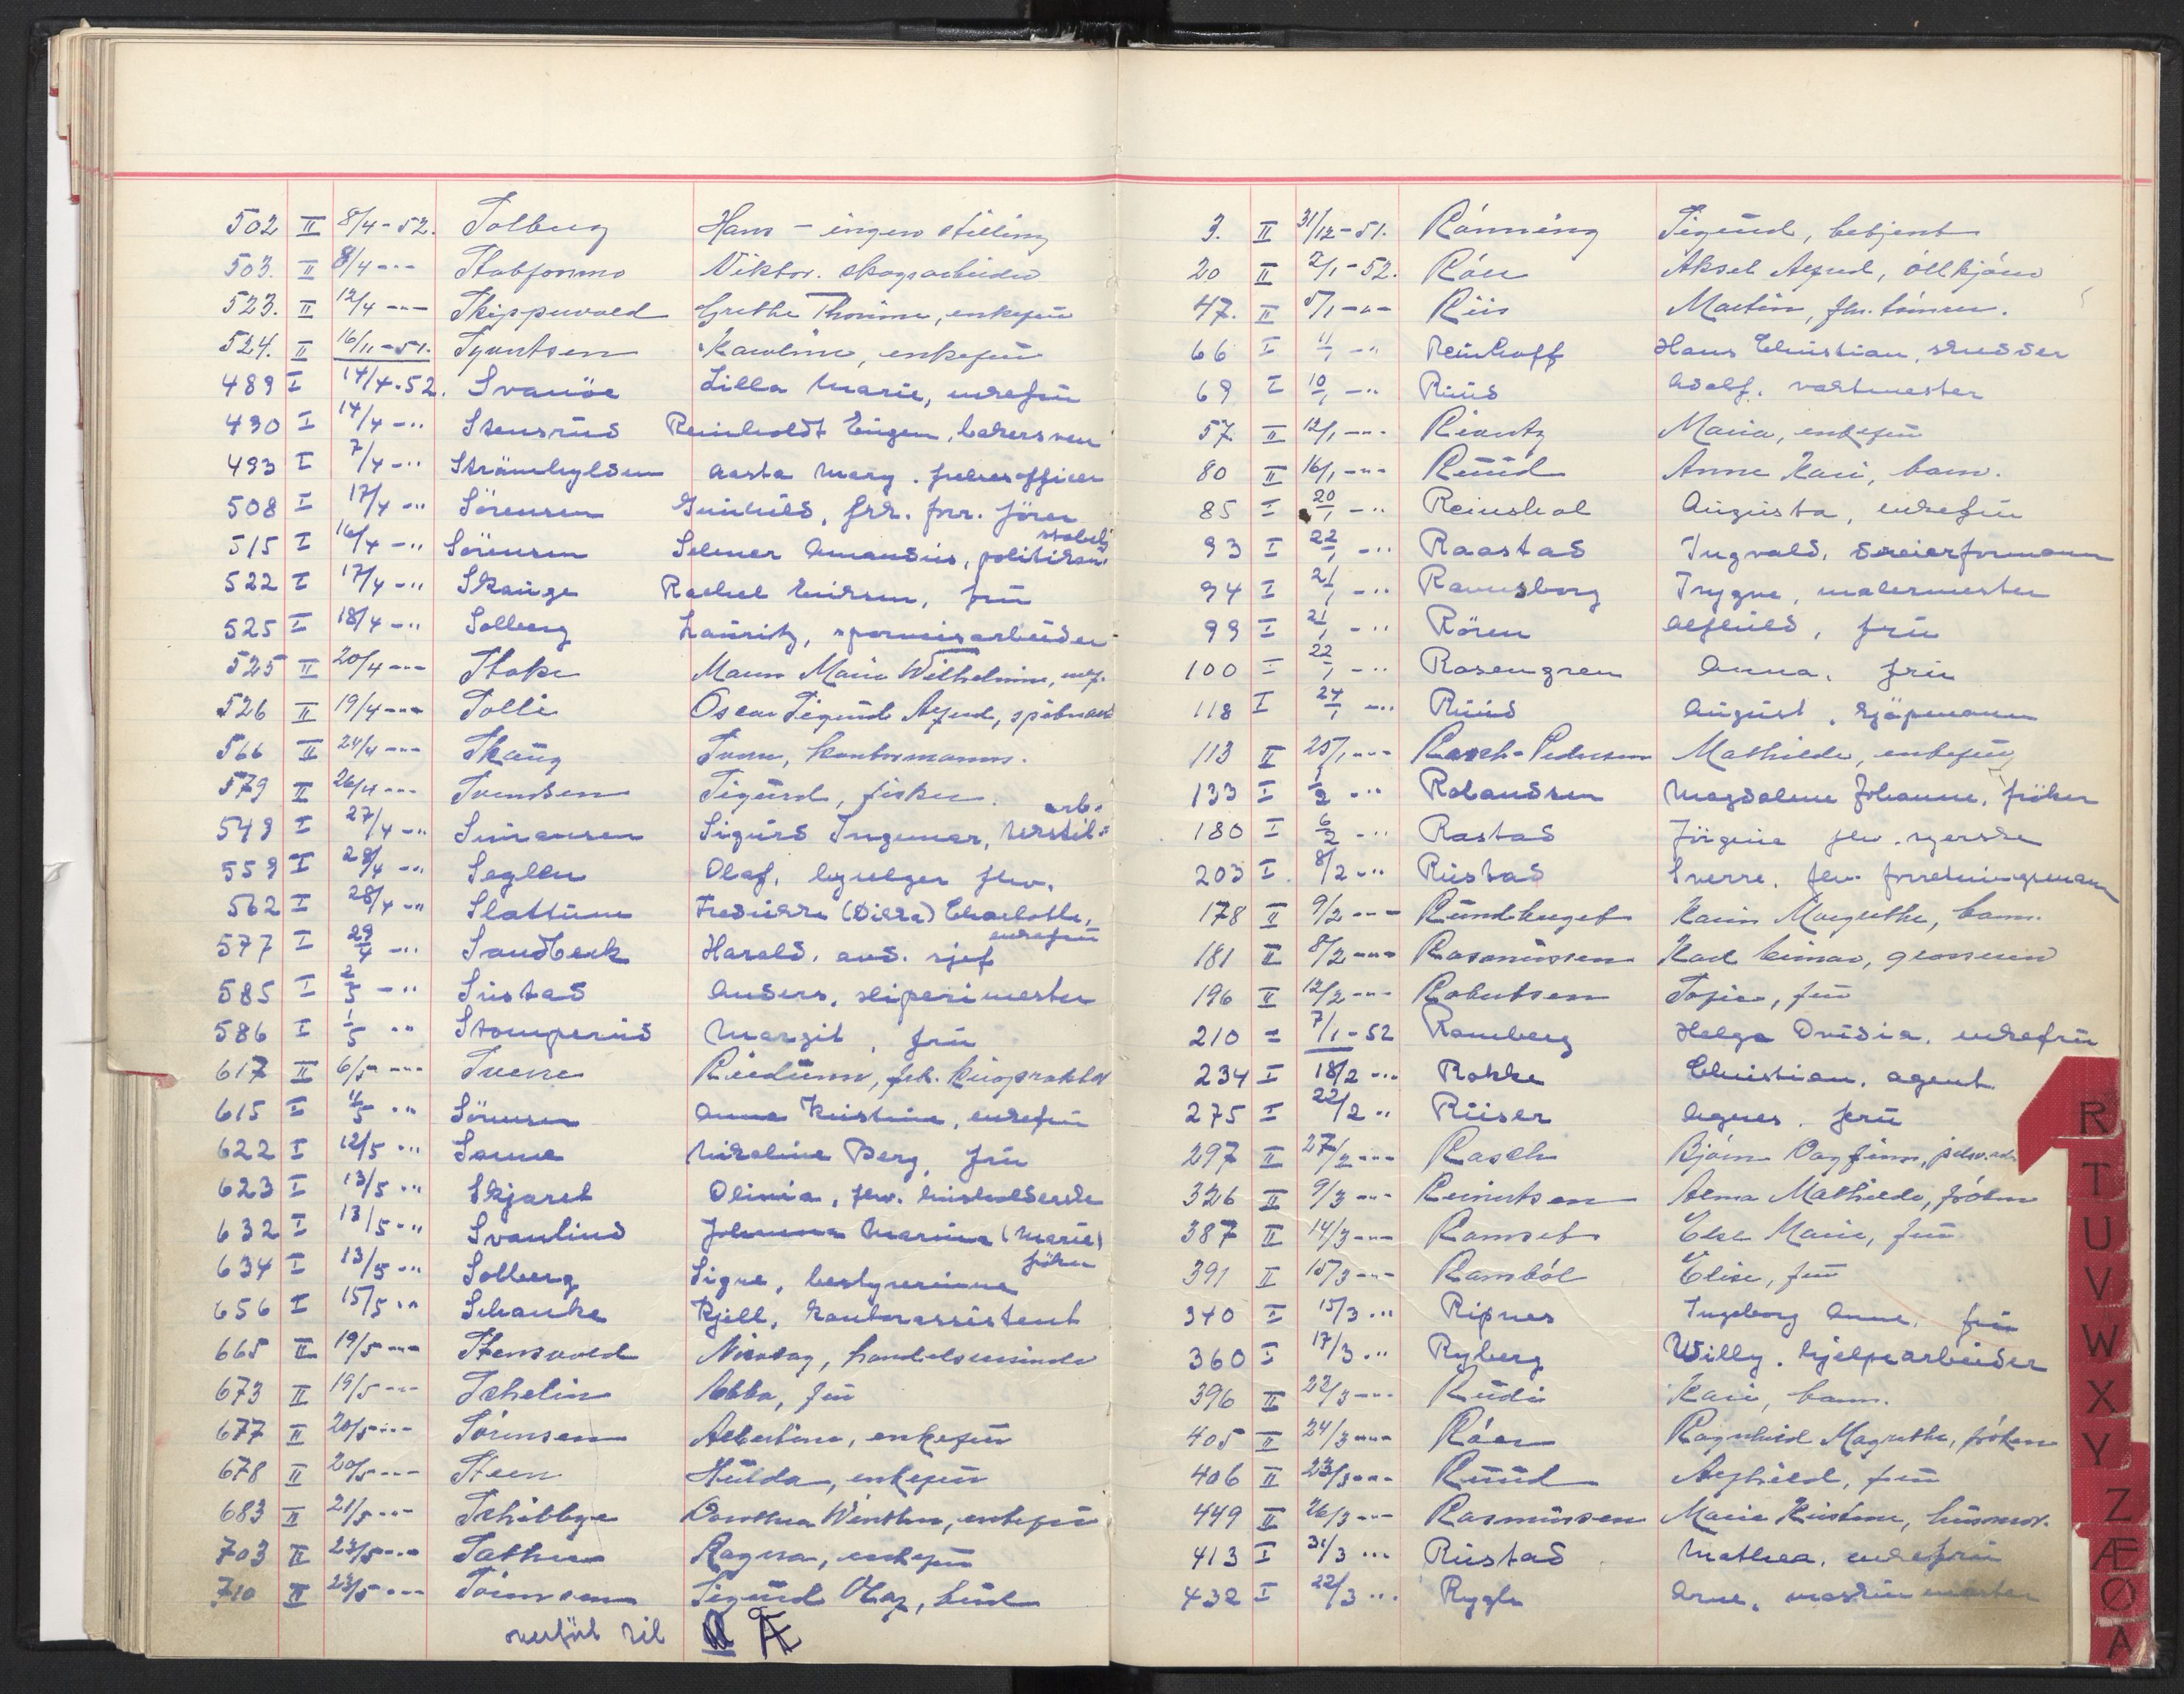 502 II 8/4-52. Solberg Hans - ingen stilling
503. II 8/4 -"- Stabforsmo Viktor. skogsarbeider
523. II 12/4 -"- Skippervold Grethe Thorine, enkefru
524. II 16/11-51. Syvertsen Karoline, enkefru
489 I 14/4-52. Svanöe Lilla Marie, enkefru
490 I 14/4 -" Stensrud Reinholdt Eugen, bakersven
493 I 7/4 -" Strömhylden Aasta Mary. frelsesofficer
508 I 17/4 -" Sörensen Gunhild, frk. forr. förer
515 I 16/4 -" Sörensen Selmer Amandus, politikon.
522 I 17/4 -" Skauge Rachel Eriksen, fru
525 I 18/4 -" Solberg Lauritz, sporveisarbeider
525 II 20/4 -"- Stake Maren Marie Wilhelmine,
526 II 19/4 -"- Solli Oscar Sigurd Alfred,
566 II 24/4 -"- Skaug Sven, kontormann.
579 II 26/4 -"- Svendsen Sigurd, fisker.
549 I 27/4 -" Simensen Sigurd Ingemar, tekstil= arb.
559 I 28/4 -" Seglen Olaf, bryggeri fhv.
562 I 28/4 -" Slattum Fredrikke (Dikka) Charlotte, enkefru
577 I 29/4 -" Sandbeck Harald, avd. sjef
585 I 2/5 -" Sústad Anders, sliperimester
586 I 1/5 " Stomperud Margit, fru
617 II 6/5 -"- Sverre Reidunn, frk. kiropraktor
615 I 4/5 " Sörensen Anna Kristine, enkefru
622 I 12/5 " Sanne Nikoline Berg, fru
623 I 13/5 " Skjaret Olinia, fhv. husholderske
632 I 13/5 -" Svanlund Johanna Marina (Marie) fröken
634 I 13/5 -" Solberg Signe, bestyrerinne
656 I 15/5 " Schanke Kjell, kontorassistent
665 II 19/5 -"- Stensvold handelsreisende
673 II 19/5 -"- Schelin Ebba, fru
677 II 20/5 -"- Sörensen Albertine, enkefru
678 II 20/5 -"- Steen Hulda, enkefru
683 II 21/5 -"- Schibbye Dorothea Winther, enkefru
703 II 23/5 -"- Sæther Ragna, enkefru
710 II 23/5 -"- Simensen Sigurd Olaf,
overfört til Æ
3. II 31/12-51. Rønning Sigurd, betjent
20 II 2/1-52. Röer Aksel Alfred, ölkjörer
47. II 5/1 -"- Riis Martin, fhv. tömrer.
66 I 11/1 -" Reinhoff Hans Christian, skredder
69 I 10/1 -" Ruud Adolf. vaktmester
57. II 12/1 -"- Riewitz Maria, enkefru
80 II 16/1 -"- Ruud Anne Kari, barn.
85 I 20/1 -" Reinskol Augusta, enkefru
93 I 22/1 -" Raastad Ingvald, dreierformann
94 I 21/1 -" Ravnsborg Trygve, malermester
99 I 21/1 -" Rören Alfhild, fru
100 I 22/1 -" Rosengren Anna, fru
118 I 24/1 -" Ruud August, kjöpmann
113 II 25/1 -"- Rasch-Pedersen Mathilde, enkefru
133 I 1/2 -" Rolandsen Magdalene Johanne, fröken
180 I 6/2 -" Rastad Jörgine fhv. syerske
203 I 8/2 -" Rustad Sverre, fhv. forretningsmann
178 II 9/2 -"- Rundhaget Karin Margrethe, barn.
181 II 8/2 -"- Rasmussen Karl Einar, grosserer
196 II 12/2 -"- Robertsen Sofie, fru
210 = 7/1-52 Ramberg Helga Ovidia, enkefru
234 I 18/2 -" Rokke Christian, agent
275 I 22/2 " Riiser Agnes, fru
297 II 27/2 -"- Rasch Björn Dagfinn,
326 II 9/3 -"- Reinertsen Alma Mathilde, fröken
387 II 14/3 -"- Ramset Else Marie, fru
391 II 15/3 -"- Ramböl Elise, fru
340 I 15/3 -" Ripnes Ingeborg Anne, fru
360 I 17/3 " Ryberg Willy. hjelpearbeider
396 II 22/3 -"- Rudi Kari, barn.
405 II 24/3 -"- Röer Ragnhild Magrethe, fröken
406 II 23/3 -"- Ruud Alfhild, fru
449 II 26/3 -"- Rasmussen Marie Kristine, husmor.
413 I 31/3 -" Rustad Mathea, enkefru
432 I 22/3 -" Rygh Arne, maskinmester
R
T
U
V
W
X
Y
Z
Æ
Ø
A